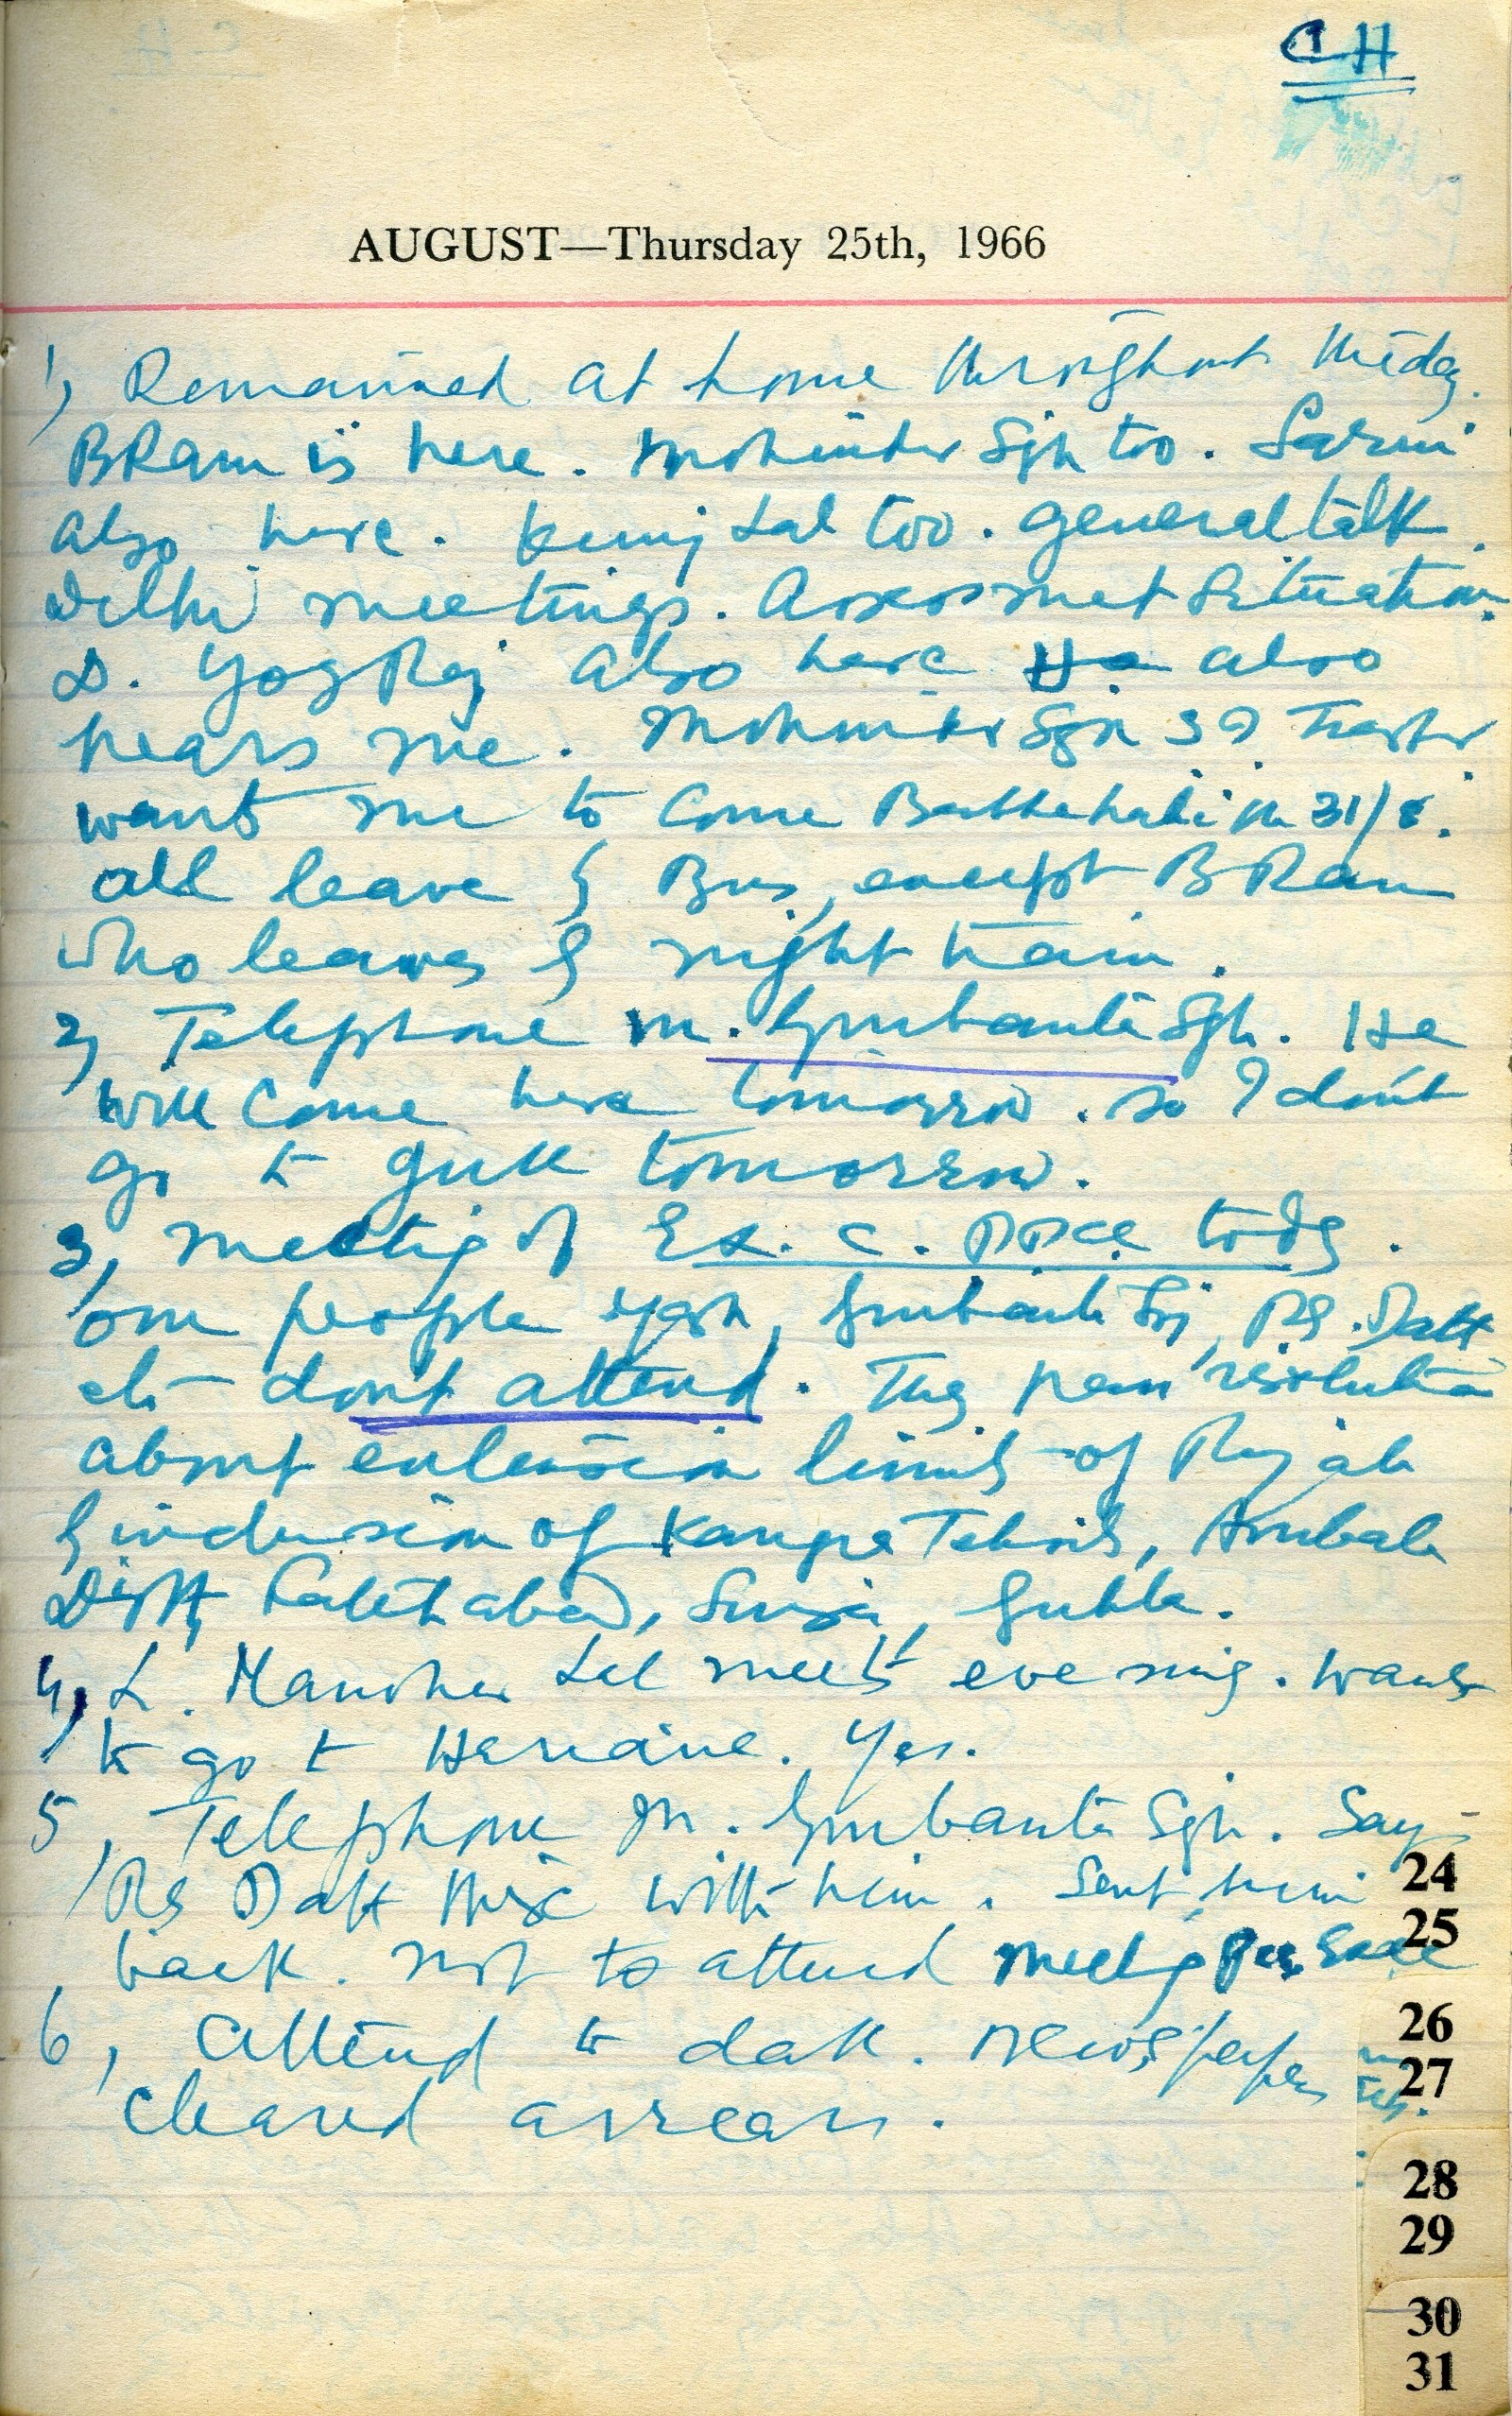 CH
AUGUST—Thursday 25th, 1966
1, Remained at home throughout the day.
B Ram is here. Mohinder Sgh too.
also here. Kunj Lal too. general talk.
Delhi meetings. Situation.
D. Yog Raj also here He also
hears me. Mohinder Sgh
want me to come on 31/8.
all leave by Bus, except B Ram
who leaves by night train.
2, Telephone M. Gurbanta Sgh. He
will come here tomorrow. so I don't
go to Jull tomorrow.
3, meeting of Ex. C. PPCC today.
our people Yash, Gurbanta Sgh, RS. Datt
etc dont attend. They pass resolution
about extension limits of Punjab
inclusion of Kangra Tehsils, Ambala
Distt, Fatehabad, Sirsa, Guhla.
4, L. Manohar Lal meets evening. wants
to go to Hariana. Yes.
5, Telephone M. Gurbanta Sgh. Say
RS Datt there with him. Sent him
back. not to attend meeting
6, Attend to dak. Newspapers
cleared arrears.
24
25
26
27
28
29
30
31